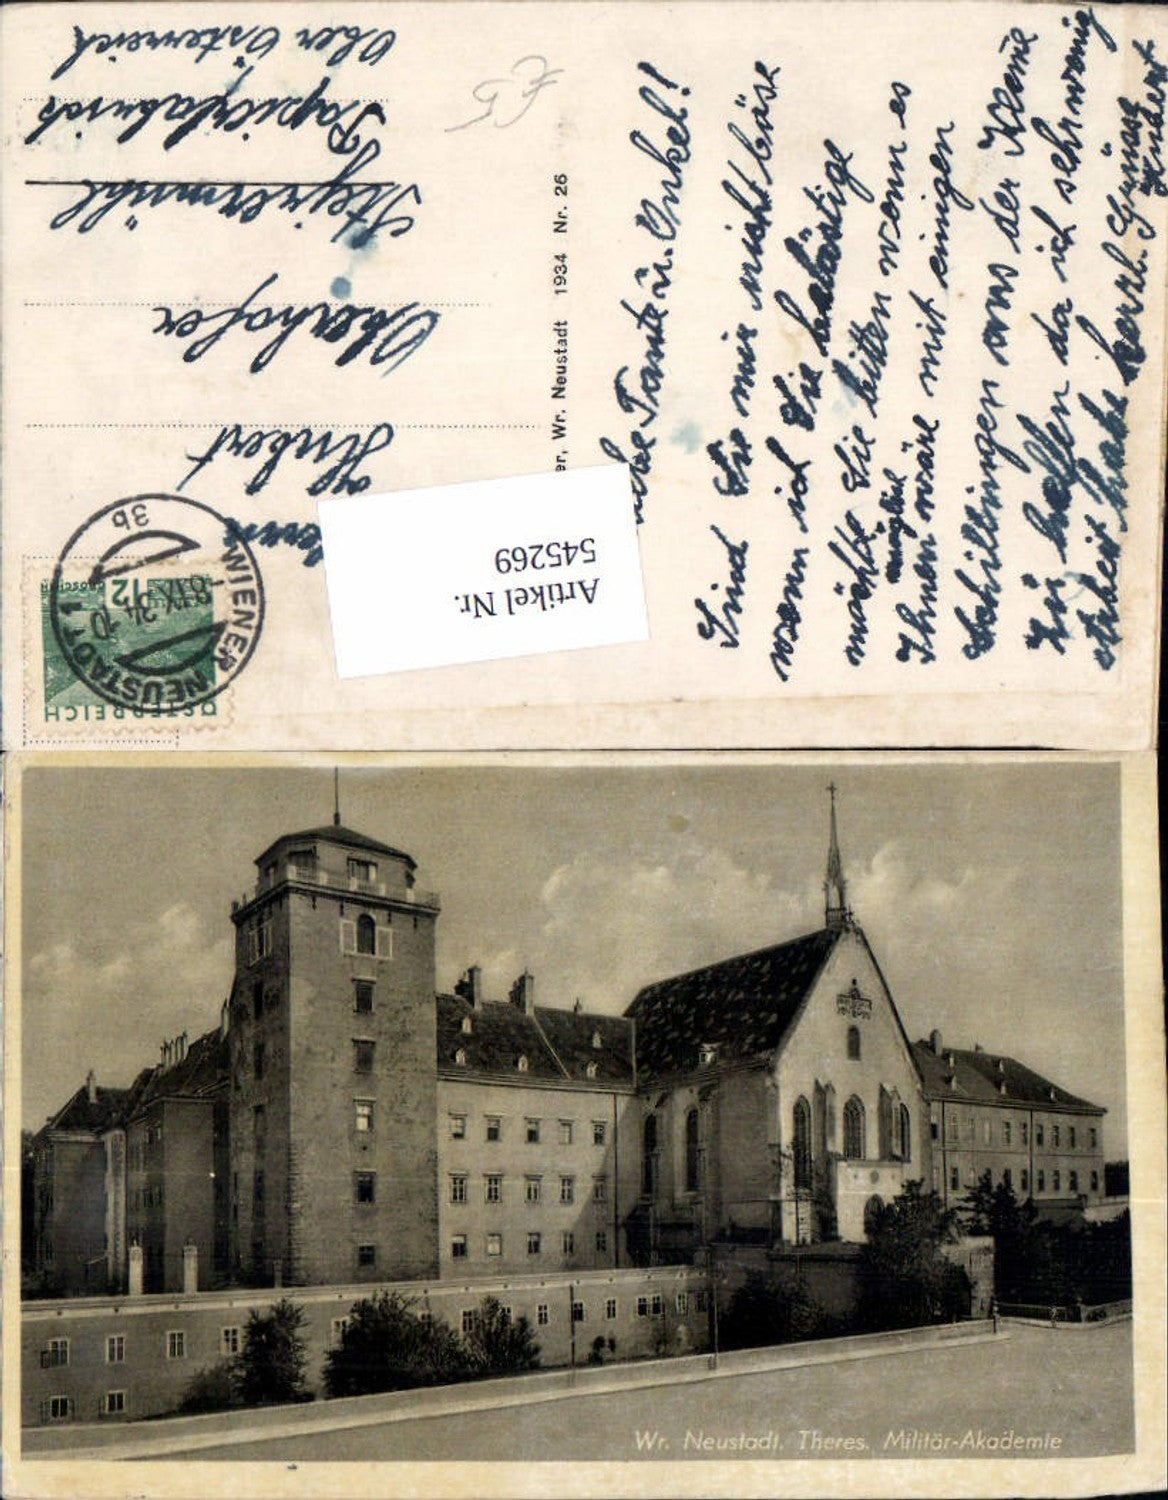 Liebe Tante u. Onkel!
Sind Sie mir nicht böse
wenn ich Sie belästige
möchte Sie bitten wenn es
Ihnen möglich wäre mit einigen
Schillingen aus der Kleme
zu helfen da ich sehr wenig
Arbeit habe herzl. Grüsse
Hubert
er, Wr. Neustadt 1934 Nr. 26
ÖSTERREICH
12 GROSCHEN
WIENER NEUSTADT 1
8.IX.34
3b
Herrn
Hubert
Oberhofer
Steyrermühl
Papierfabrick
Ober Österreich
Artikel Nr.
545269
Wr. Neustadt. Theres. Militär-Akademie